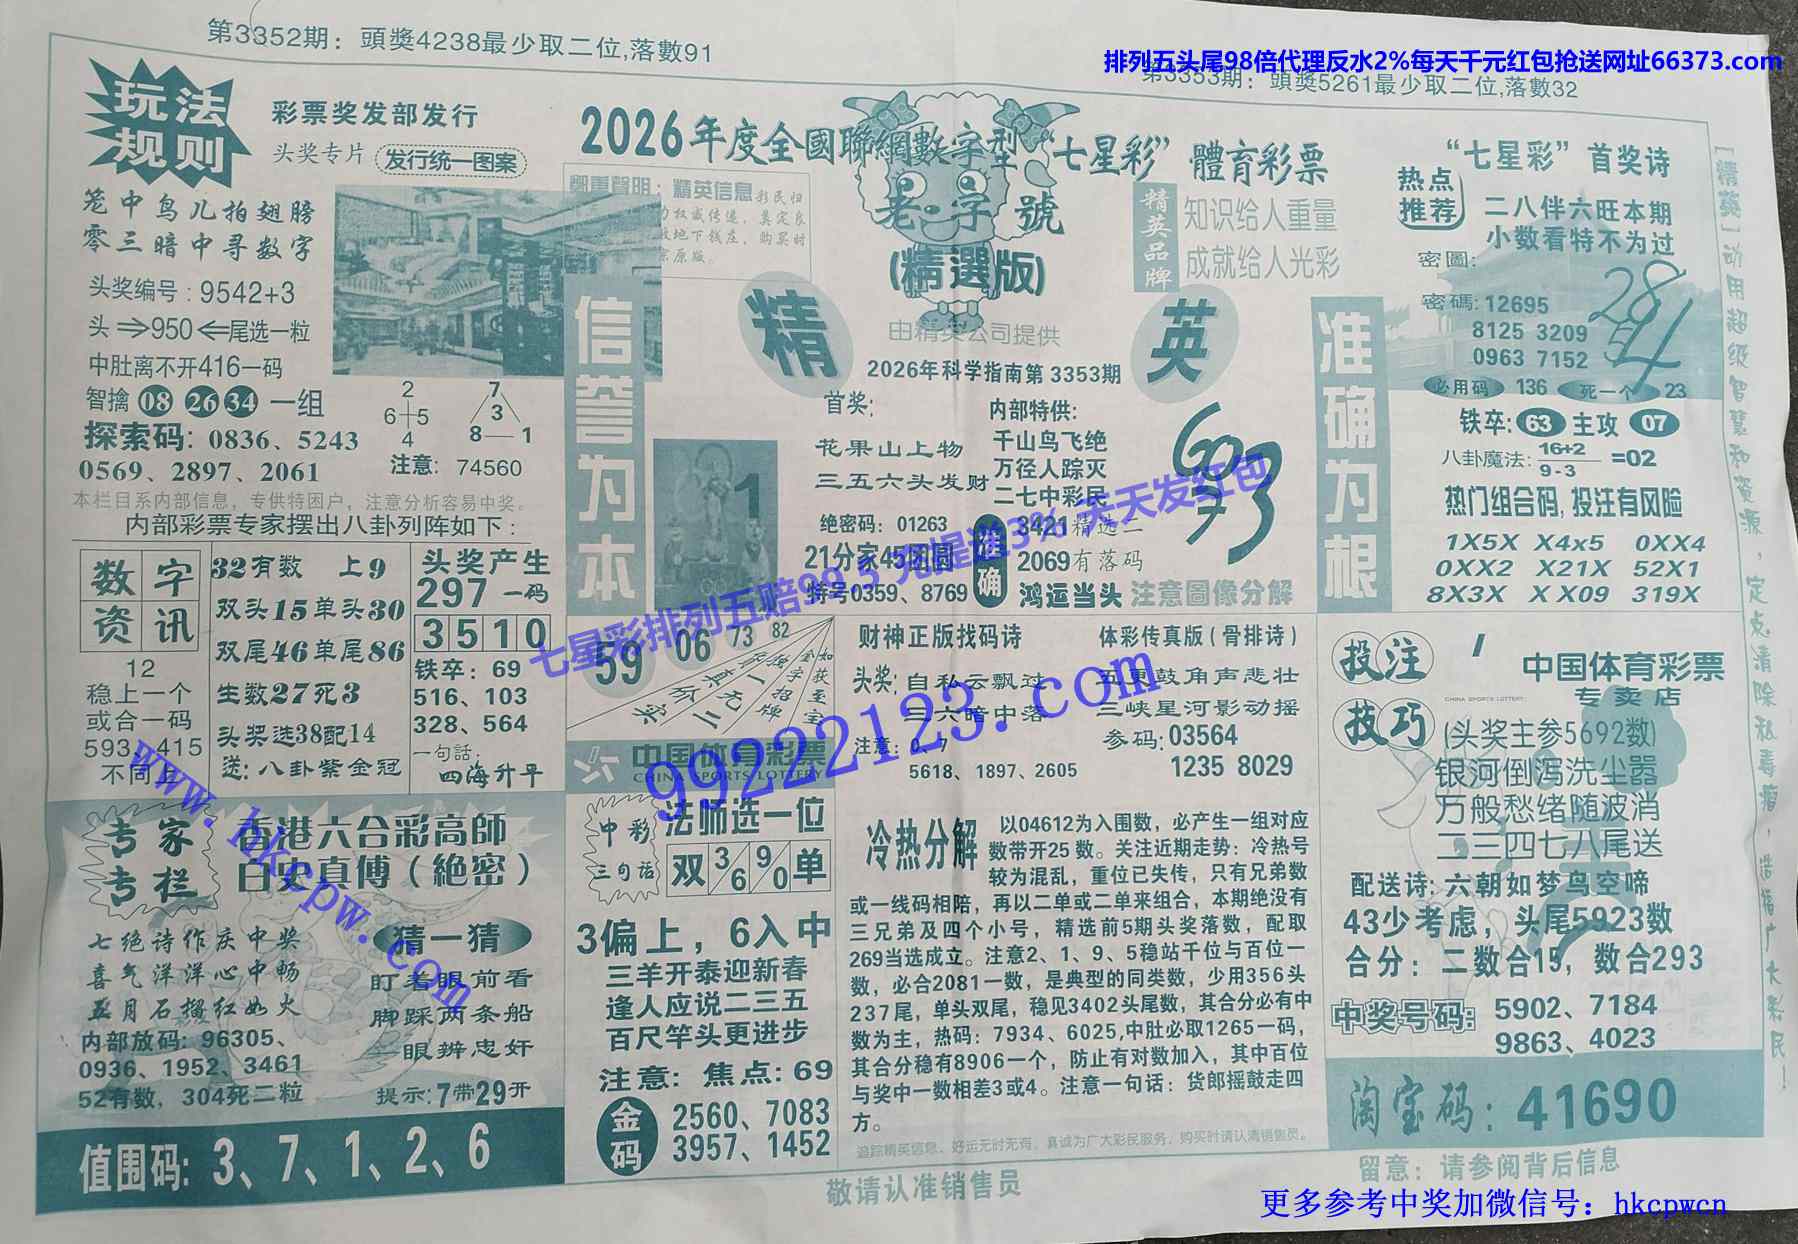 第3352期：頭獎4238最少取二位,落數91
排列五头尾98倍代理反水2%每天千元红包抢送网址66373.com
第3353期：頭獎5261最少取二位,落數32
玩法
规则
彩票奖发部发行
头奖专片 发行统一图案
笼中鸟儿拍翅膀
零三暗中寻数字
头奖编号：9542+3
头⇒950⇐尾选一粒
中肚离不开416一码
智擒 08 26 34 一组
探索码：0836、5243
0569、2897、2061
2
6 5
4
7
3
8 1
注意：74560
本栏目系内部信息，专供特困户，注意分析容易中奖。
内部彩票专家摆出八卦列阵如下：
2026年度全國聯網數字型“七星彩”體育彩票
鄭重聲明：精英信息
老字號
(精選版)
由精英公司提供
精英品牌
知识给人重量
成就给人光彩
精
英
2026年科学指南第3353期
信誉为本
准确为根
首奖：
花果山上物
三五六头发财
绝密码：01263
21分家45团圆
特号0359、8769
内部特供：
千山鸟飞绝
万径人踪灭
二七中彩民
准确
3421精选二
2069有落码
鸿运当头 注意圖像分解
1
“七星彩”首奖诗
热点
推荐
二八伴六旺本期
小数看特不为过
密圖：
密碼：12695
8125 3209
0963 7152
必用码 136 死一个 23
铁卒：63 主攻 07
八卦魔法：16+2
9-3
=02
热门组合码,投注有风险
1X5X X4x5 0XX4
0XX2 X21X 52X1
8X3X XX09 319X
数字
资讯
12
稳上一个
或合一码
593、415
不同上
32有数 上9
双头15单头30
双尾46单尾86
生数27死3
头奖选38配14
送：八卦紫金冠
头奖产生
297一码
3510
铁卒：69
516、103
328、564
一句話：
四海升平
59 06 73 82
中国体育彩票
CHINA SPORTS LOTTERY
财神正版找码诗
头奖：自私云飘过
二六暗中落
注意：0、7
5618、1897、2605
体彩传真版（骨排诗）
五更鼓角声悲壮
三峡星河影动摇
参码：03564
1235 8029
投注
技巧
中国体育彩票
CHINA SPORTS LOTTERY
专卖店
(头奖主参5692数)
银河倒泻洗尘嚣
万般愁绪随波消
二三四七八尾送
配送诗：六朝如梦鸟空啼
43少考虑，头尾5923数
合分：二数合15，数合293
中奖号码：5902、7184
9863、4023
淘宝码：41690
留意：请参阅背后信息
专家
专栏
香港六合彩高師
白史真傅（絶密）
七绝诗作庆中奖
喜气洋洋心中畅
五月石榴红如火
内部放码：96305、
0936、1952、3461
52有数，304死二粒
猜一猜
盯着眼前看
脚踩两条船
眼辨忠奸
提示：7带29开
值围码：3、7、1、2、6
中彩
三句话
法师选一位
双 3/6 9/0 单
3偏上，6入中
三羊开泰迎新春
逢人应说二三五
百尺竿头更进步
注意：焦点：69
金码
2560、7083
3957、1452
冷热分解
以04612为入围数，必产生一组对应
数带开25数。关注近期走势：冷热号
较为混乱，重位已失传，只有兄弟数
或一线码相陪，再以二单或二单来组合，本期绝没有
三兄弟及四个小号，精选前5期头奖落数，配取
269当选成立。注意2、1、9、5稳站千位与百位一
数，必合2081一数，是典型的同类数，少用356头
237尾，单头双尾，稳见3402头尾数，其合分必有中
数为主，热码：7934、6025,中肚必取1265一码，
其合分稳有8906一个，防止有对数加入，其中百位
与奖中一数相差3或4。注意一句话：货郎摇鼓走四
方。
追踪精英信息，好运无时无有，真诚为广大彩民服务，购买时请认清销售员。
敬请认准销售员
七星彩排列五赔99.5 充提送3% 天天发红包
99222123.com
www.hkcpw.com
更多参考中奖加微信号：hkcpwcn